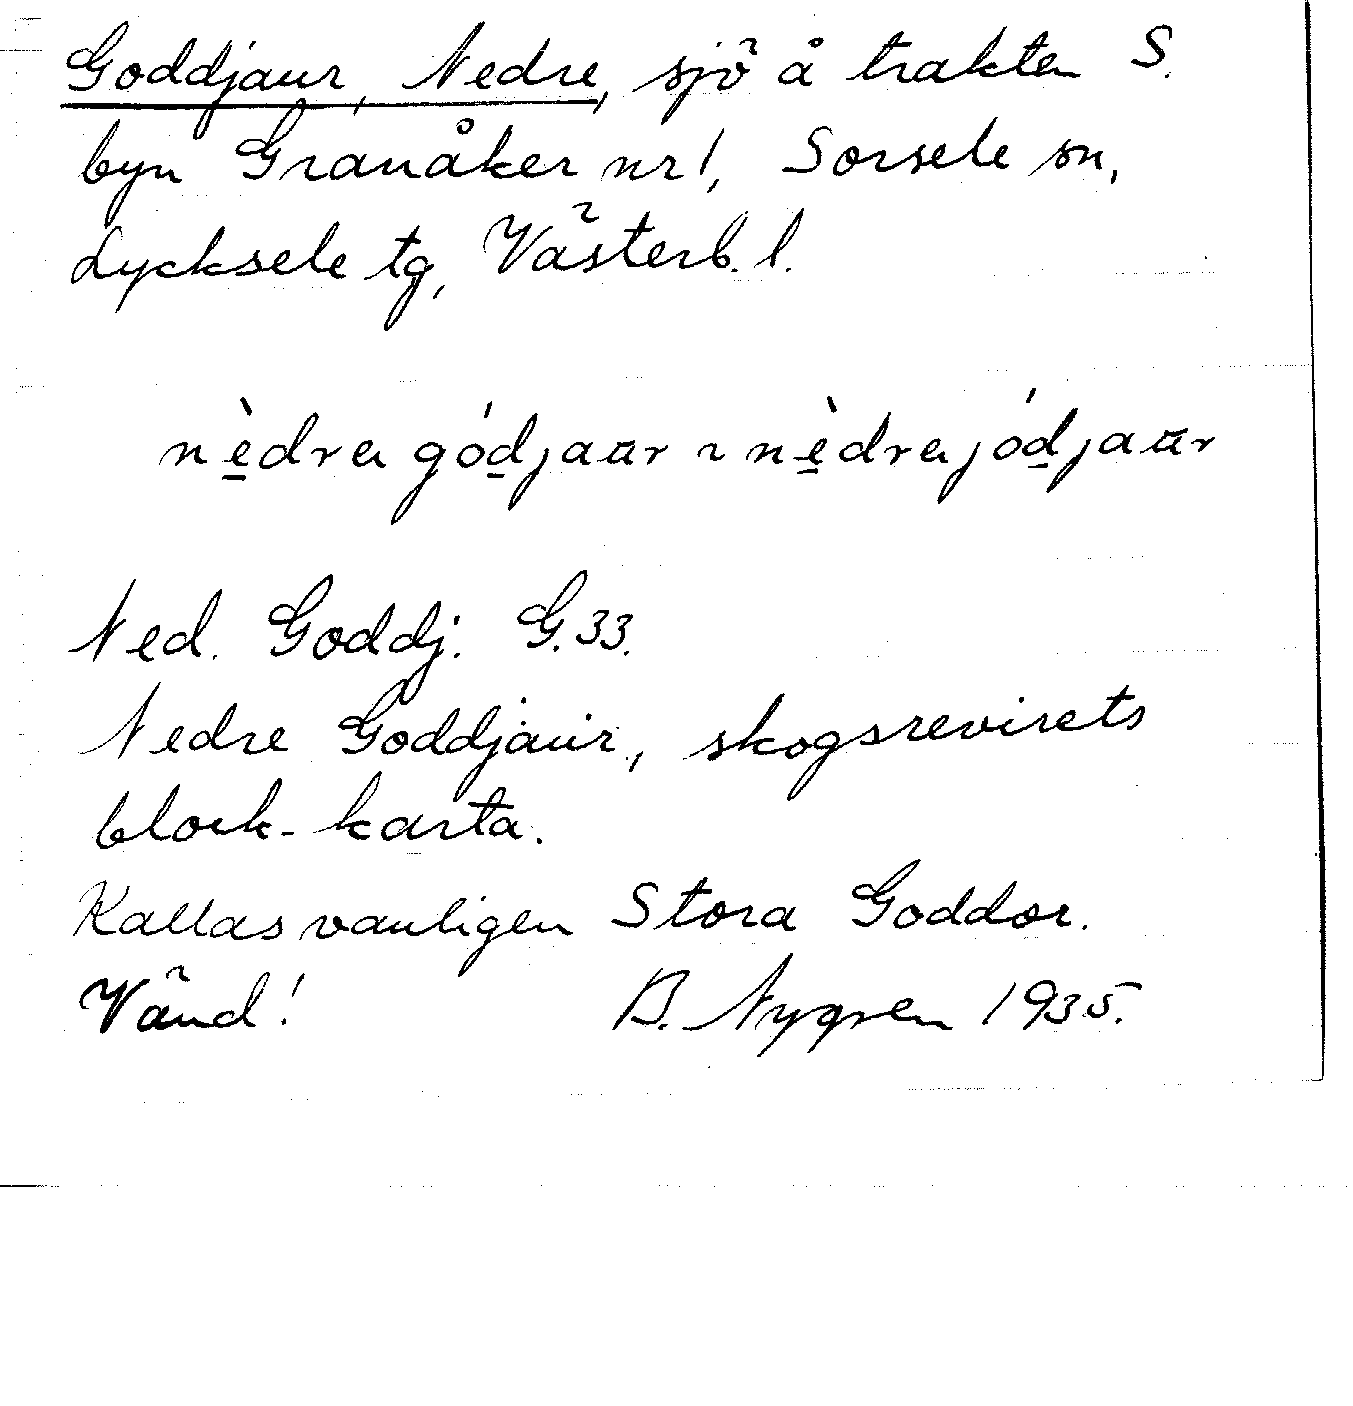 Goddjaur, Nedre, sjö å trakten S.
byn Granåker nr 1, Sorsele sn,
Lycksele tg, Västerb. l.
nèdra gódjaur ~ nèdra jódjaur
Ned. Goddj. G. 33.
Nedre Goddjaur, skogsrevirets
block-karta.
Kallas vanligen Stora Goddor.
Vänd! B. Nygren 1935.